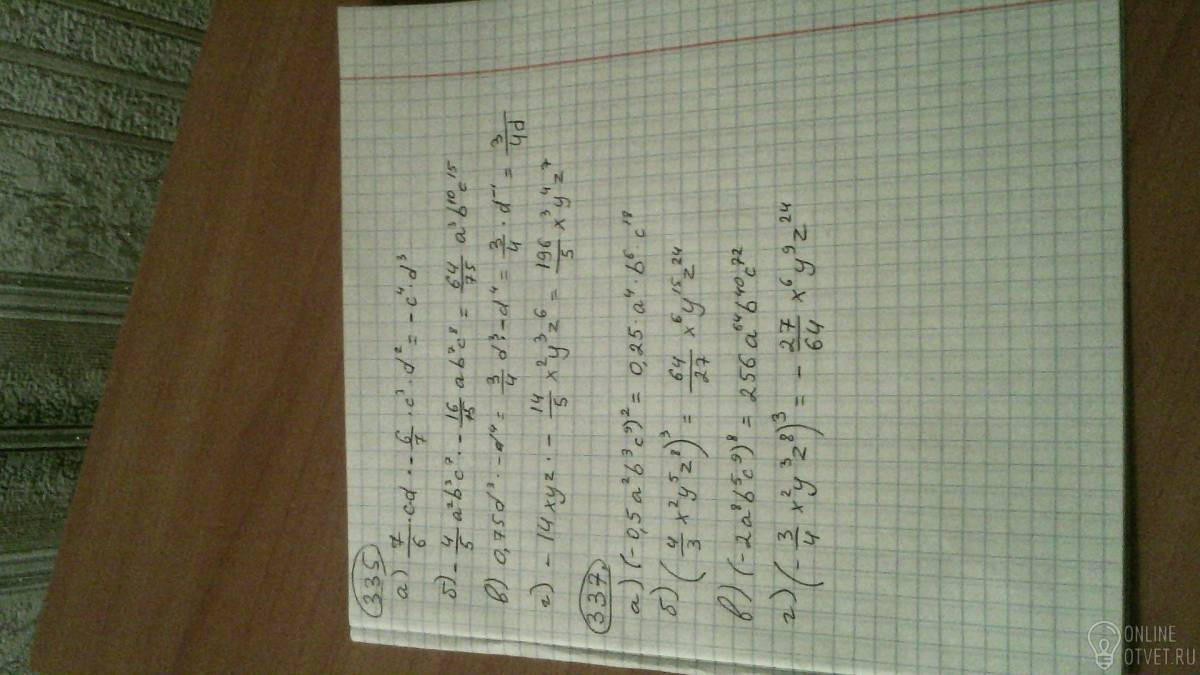 335.
а) 7/6 · cd · - 6/7 · c³ · d² = - c⁴ · d³
б) - 4/5 a²b³c⁷ · - 16/15 ab⁷c⁸ = 64/75 a³b¹⁰c¹⁵
в) 0,75d³ · - d⁴ = 3/4 d³ - d⁴ = 3/4 · d⁻¹ = 3/4d
г) - 14xyz · - 14/5 x²y³z⁶ = 196/5 x³y⁴z⁷
337.
а) (-0,5a²b³c⁹)² = 0,25 · a⁴ · b⁶ · c¹⁸
б) (4/3 x²y⁵z⁸)³ = 64/27 x⁶y¹⁵z²⁴
в) (-2a⁸b⁵c⁹)⁸ = 256a⁶⁴b⁴⁰c⁷²
г) (- 3/4 x²y³z⁸)³ = - 27/64 x⁶y⁹z²⁴
ONLINE
OTVET.RU